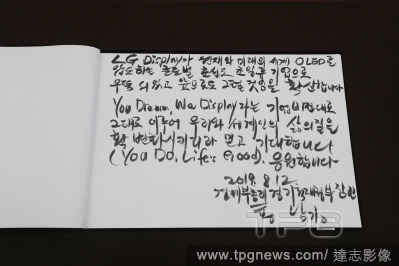 LG Display가 현재와 미래의 세계 OLED를
선도하는 글로벌 초일류 기업으로
우뚝 서 있고 앞으로도 그럴 것임을 확신합니다
You Dream, We Display라는 기업비전대로
그대로 이루어 우리와 세계인의 삶의 질을
확 변화시키리라 믿고 기대합니다
(You Do, Life's Good). 응원합니다
2019. 8. 12.
경제부총리 겸 기획재정부장관
홍남기
TPG
www.tpgnews.com/達志影像